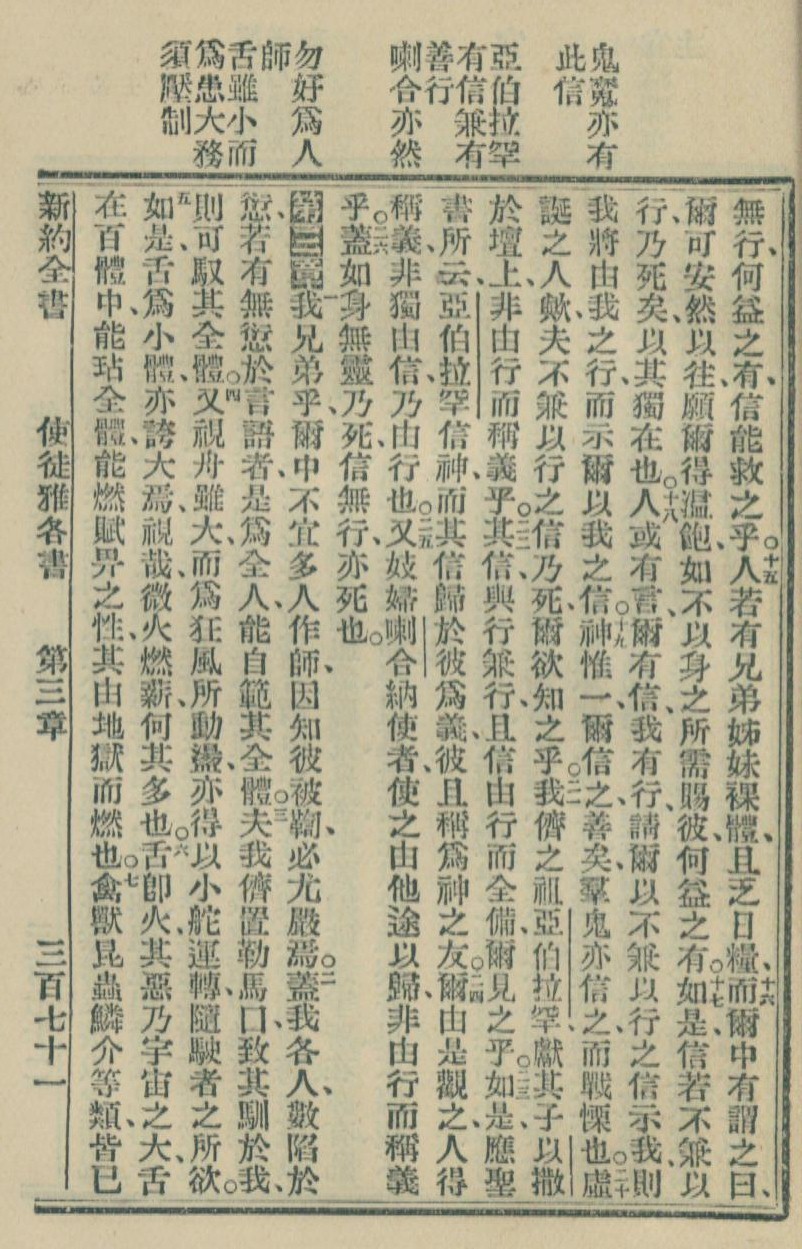 鬼魔亦有
此信
亞伯拉罕
有信兼有
善行
喇合亦然
勿好爲人
師
舌雖小而
爲患大務
須壓制
無行、何益之有、信能救之乎、○十五人若有兄弟姊妹裸體、且乏日糧、十六而爾中有謂之曰、
爾可安然以往、願爾得溫飽、如不以身之所需賜彼、何益之有、○十七如是、信若不兼以
行、乃死矣、以其獨在也、○十八人或有言、爾有信、我有行、請爾以不兼以行之信示我、則
我將由我之行、而示爾以我之信、○十九神惟一、爾信之、善矣、羣鬼亦信之、而戰慄也、○二十虛
誕之人歟、夫不兼以行之信乃死、爾欲知之乎、○二一我儕之祖亞伯拉罕、獻其子以撒
於壇上、非由行而稱義乎、○二二其信與行兼行、且信由行而全備、爾見之乎、○二三如是、應聖
書所云、亞伯拉罕信神、而其信歸於彼爲義、彼且稱爲神之友、○二四爾由是觀之、人得
稱義、非獨由信、乃由行也、○二五又妓婦喇合納使者、使之由他途以歸、非由行而稱義
乎、○二六蓋如身無靈乃死、信無行、亦死也。
第三章一我兄弟乎、爾中不宜多人作師、因知彼被鞫、必尤嚴焉、○二蓋我各人、數陷於
愆、若有無愆於言語者、是爲全人、能自範其全體、○三夫我儕置勒馬口、致其馴於我、
則可馭其全體、○四又視舟雖大、而爲狂風所動盪、亦得以小舵運轉、隨駛者之所欲、○
五如是、舌爲小體、亦誇大焉、視哉、微火燃薪、何其多也、○六舌卽火、其惡乃宇宙之大、舌
在百體中、能玷全體、能燃賦畀之性、其由地獄而燃也、○七禽獸昆蟲鱗介等類、皆已
新約全書 使徒雅各書 第三章 三百七十一